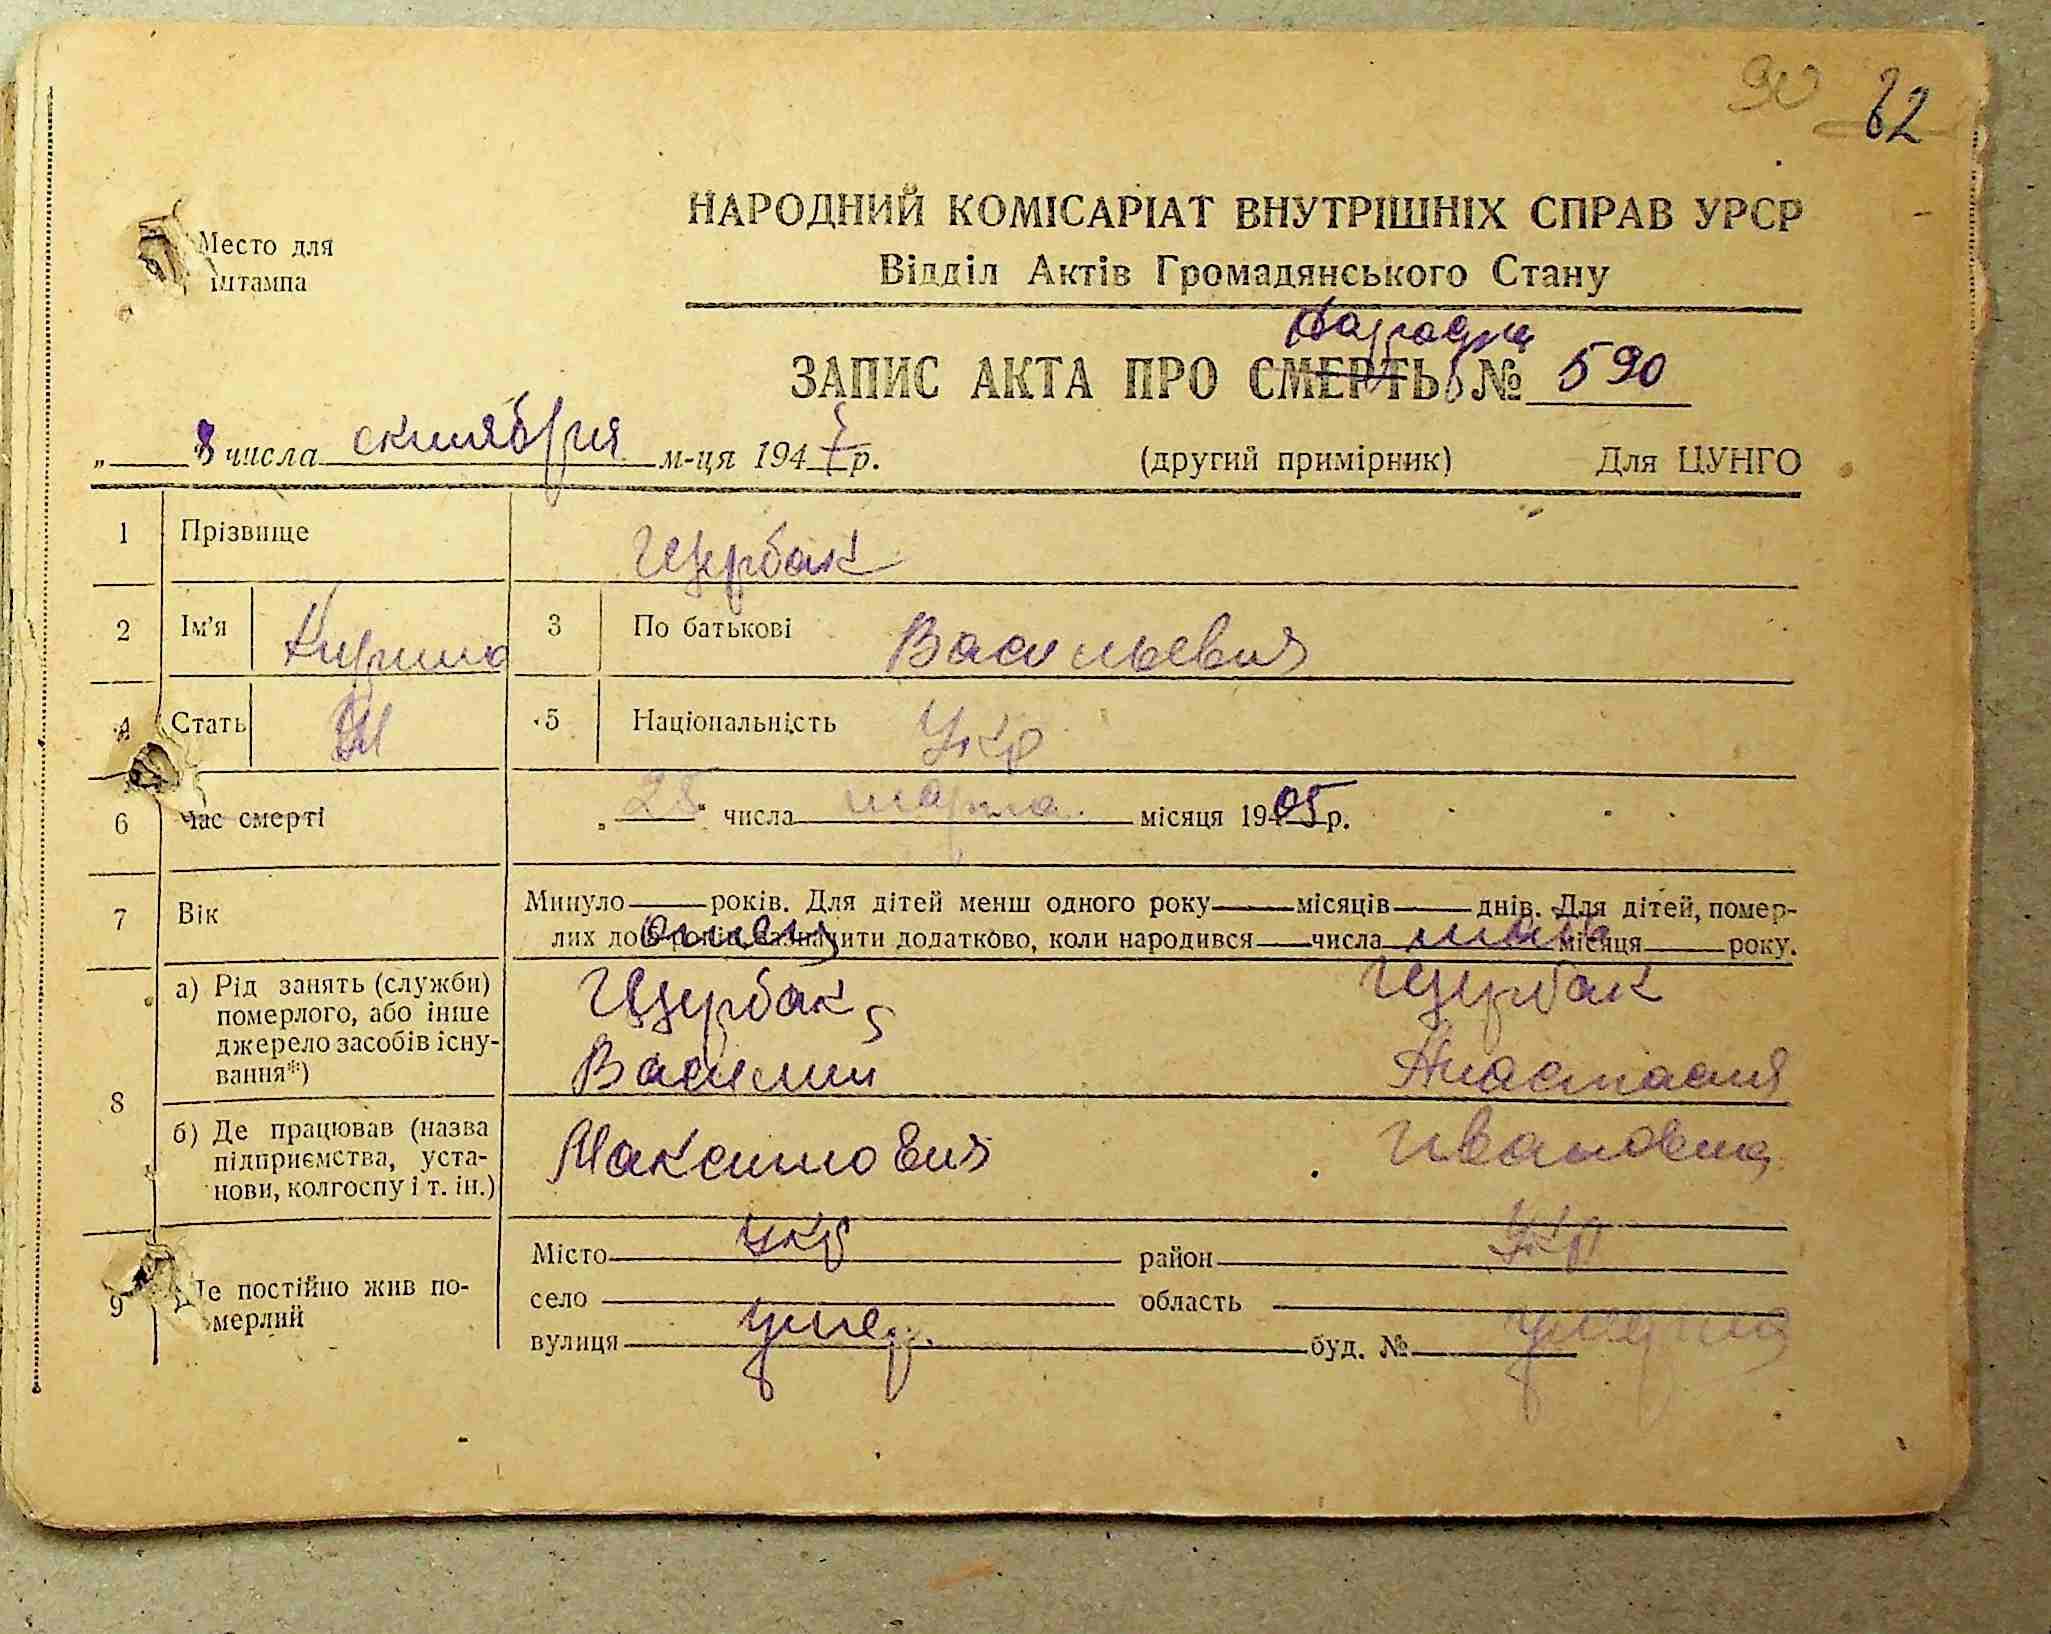 90 82
НАРОДНИЙ КОМІСАРІАТ ВНУТРІШНІХ СПРАВ УРСР
Место для
штампа
Відділ Актів Громадянського Стану
ЗАПИС АКТА ПРО СМЕРТЬ № 590
„ 8 числа октября м-ця 194 р.
(другий примірник) Для ЦУНГО
1 Прізвище Щербак
2 Ім'я 3 По батькові Васильевич
4 Стать М 5 Національність Укр
6 Час смерті „ 28 " числа марта місяця 1905 р.
7 Вік Минуло років. Для дітей менш одного року місяців днів. Для дітей, помер-
лих до років, зазначити додатково, коли народився числа місяця року.
отец мать
8 а) Рід занять (служби)
померлого, або інше
джерело засобів існу-
вання*)
Щербак, Щербак
Василий Анастасия
б) Де працював (назва
підприємства, уста-
нови, колгоспу і т. ін.)
Максимович Ивановна
укр укр
9 Де постійно жив по-
мерлий
Місто район
село область
вулиця умер. буд. №